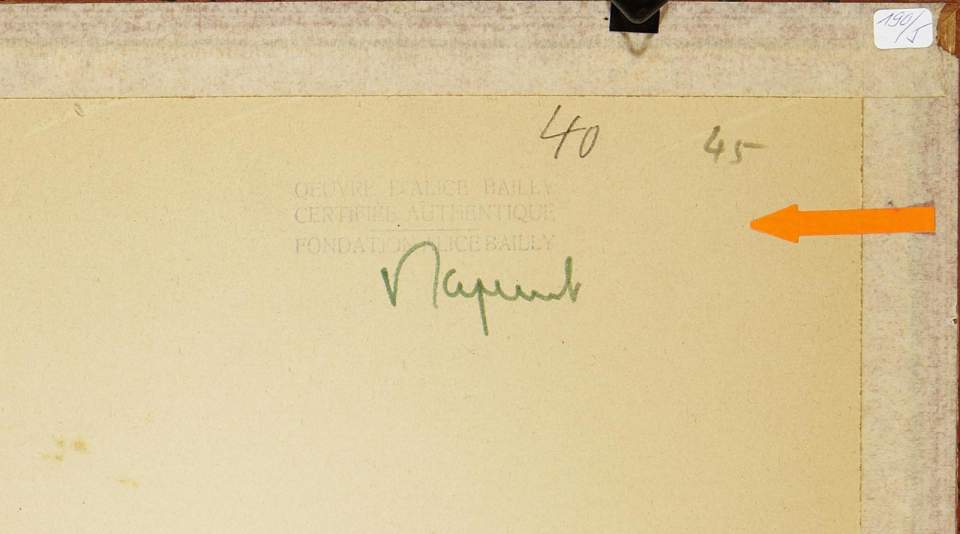 190/J
40 45
OEUVRE D'ALICE BAILLY
CERTIFIÉE AUTHENTIQUE
FONDATION ALICE BAILLY